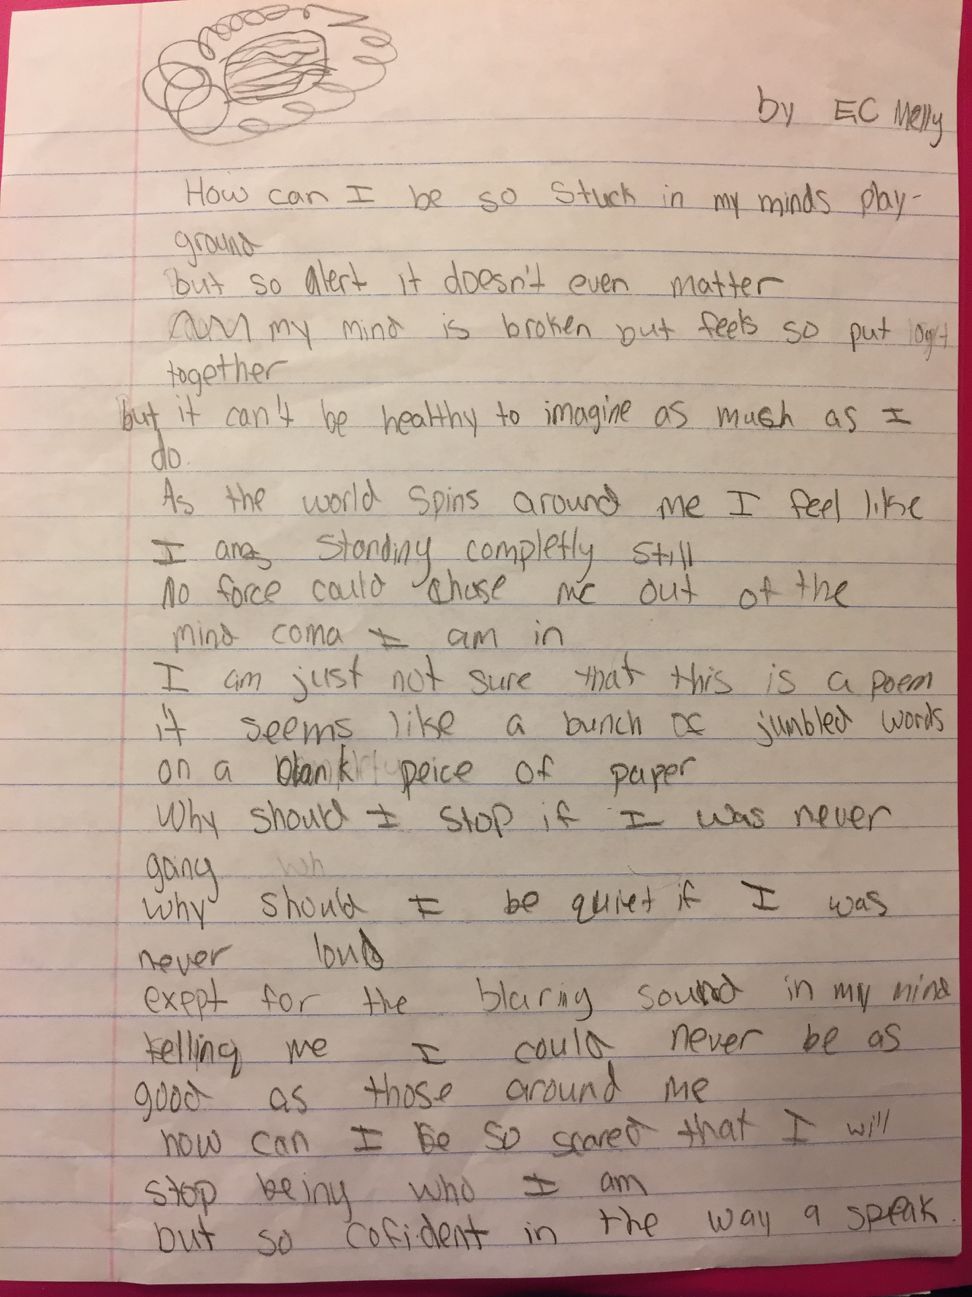 by EC Melly
How can I be so stuck in my minds play-
ground
but so alert it doesn't even matter
my mind is broken but feels so put
together
but it can't be healthy to imagine as much as I
do.
As the world spins around me I feel like
I am standing completly still
No force could chase me out of the
mind coma I am in
I am just not sure that this is a poem
it seems like a bunch of jumbled words
on a blank peice of paper
Why should I stop if I was never
going
why should I be quiet if I was
never loud
exept for the blaring sound in my mind
telling me I could never be as
good as those around me
how can I be so scared that I will
stop being who I am
but so cofident in the way a speak.